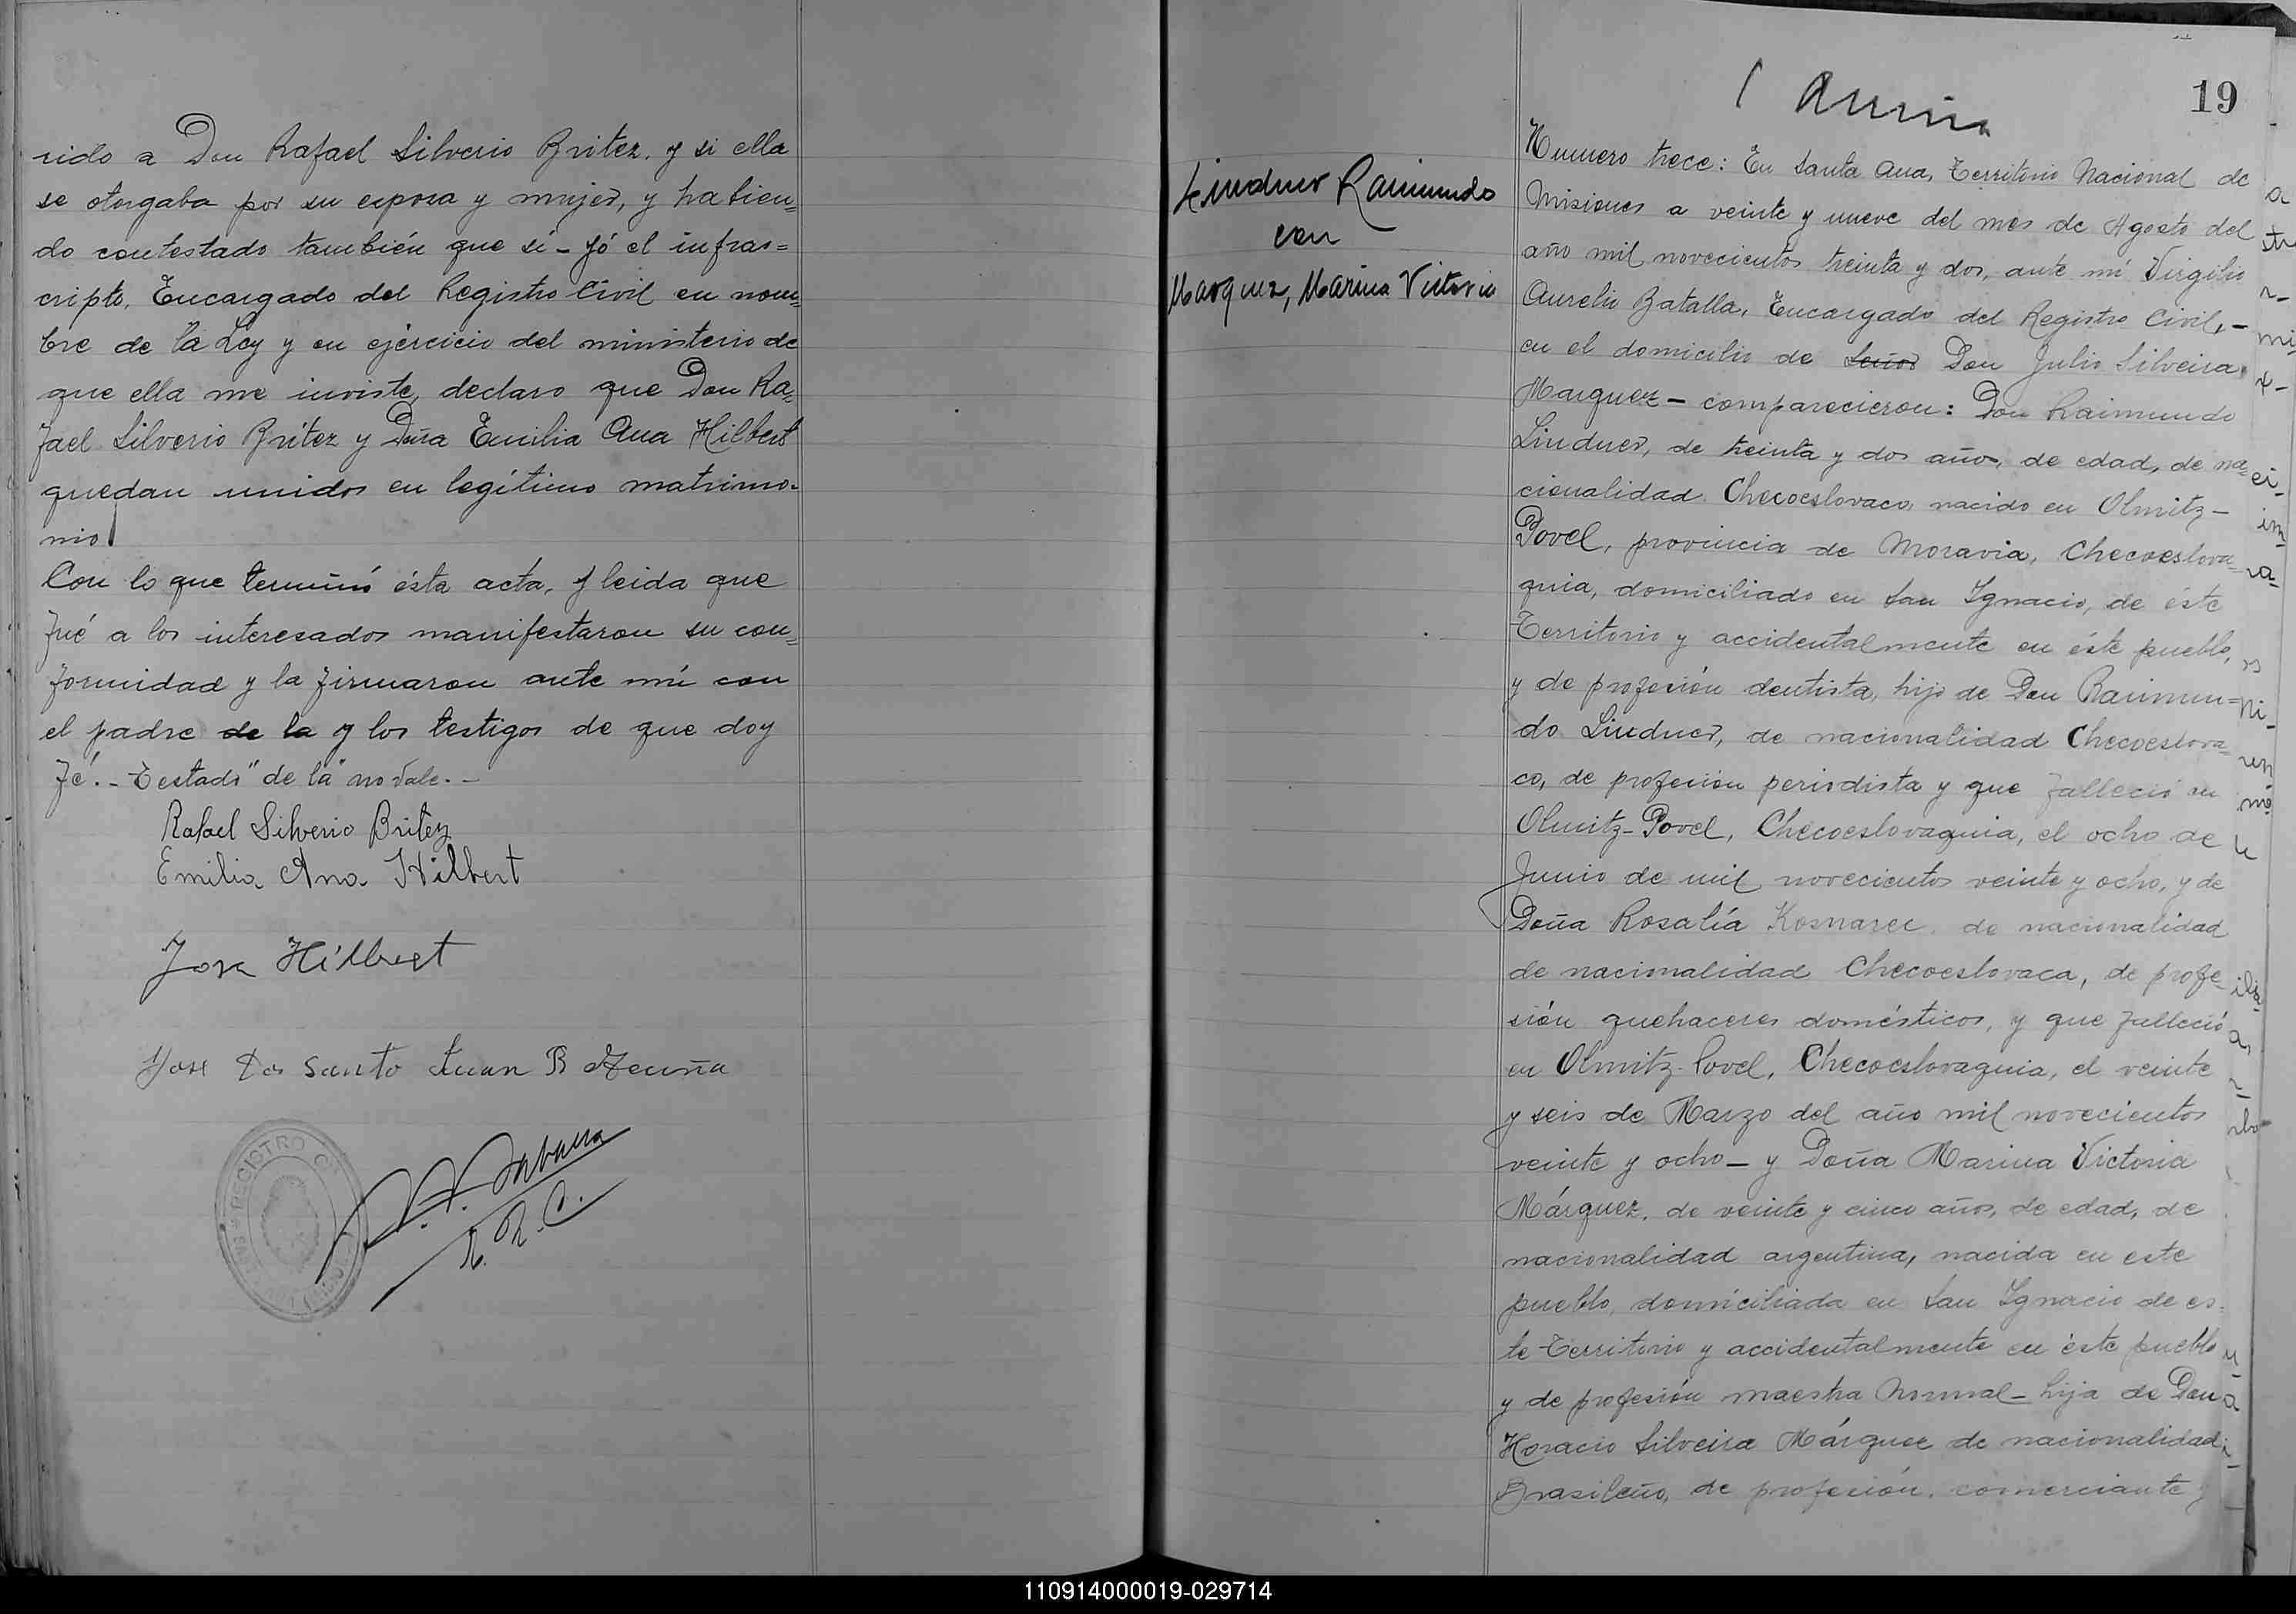 rido a Don Rafael Silverio Britez. y si ella
se otorgaba por su esposa y mujer, y habien=
do contestado también que sí - Yó el infras=
cripto, Encargado del Registro Civil en nom=
bre de la Ley y en ejercicio del ministerio de
que ella me inviste, declaro que Don Ra=
fael Silverio Britez y Doña Emilia Ana Hilbert
quedan unidos en legítimo matrimo-
nio
Con lo que terminó ésta acta, y leida que
fué a los interesados manifestaron su con=
formidad y la firmaron ante mí con
el padre de la y los testigos de que doy
fé. - Testado "de la" no vale. -
Rafael Silverio Britez
Emilia Ana Hilbert
Jose Hilbert
Jose Dos Santo Juan B Acuña
REGISTRO
E. R. C.
19
Lindner Raimundo
con
Marquez, Marina Victoria
Numero trece: En Santa Ana, Territorio Nacional de
Misiones a veinte y nueve del mes de Agosto del
año mil novecientos treinta y dos, ante mí Virgilio
Aurelio Batalla, Encargado del Registro Civil, -
en el domicilio de Señor Don Julio Silveira
Marquez - comparecieron: Don Raimundo
Lindner, de treinta y dos años, de edad, de na=
cionalidad Checoeslovaco, nacido en Olmitz -
Povel, provincia de Moravia, Checoeslova=
quia, domiciliado en San Ignacio, de éste
Territorio y accidentalmente en éste pueblo,
y de profesión dentista, hijo de Don Raimun=
do Lindner, de nacionalidad Checoeslova=
co, de profesión periodista y que falleció en
Olmitz-Povel, Checoeslovaquia, el ocho de
Junio de mil novecientos veinte y ocho, y de
Doña Rosalía de nacionalidad
de nacionalidad Checoeslovaca, de profe=
sión quehaceres domésticos, y que falleció
en Olmitz-Povel, Checoeslovaquia, el veinte
y seis de Marzo del año mil novecientos
veinte y ocho - y Doña Marina Victoria
Márquez, de veinte y cinco años, de edad, de
nacionalidad argentina, nacida en este
pueblo, domiciliada en San Ignacio de es=
te Territorio y accidentalmente en éste pueblo
y de profesión maestra Normal - hija de Don
Horacio Silveira Márquez de nacionalidad
Brasileño, de profesión, comerciante y
110914000019-029714